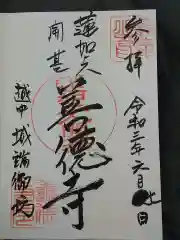 奉拝
令和三年六月七日
蓮如上人
開基
善德寺
越中 城端御坊